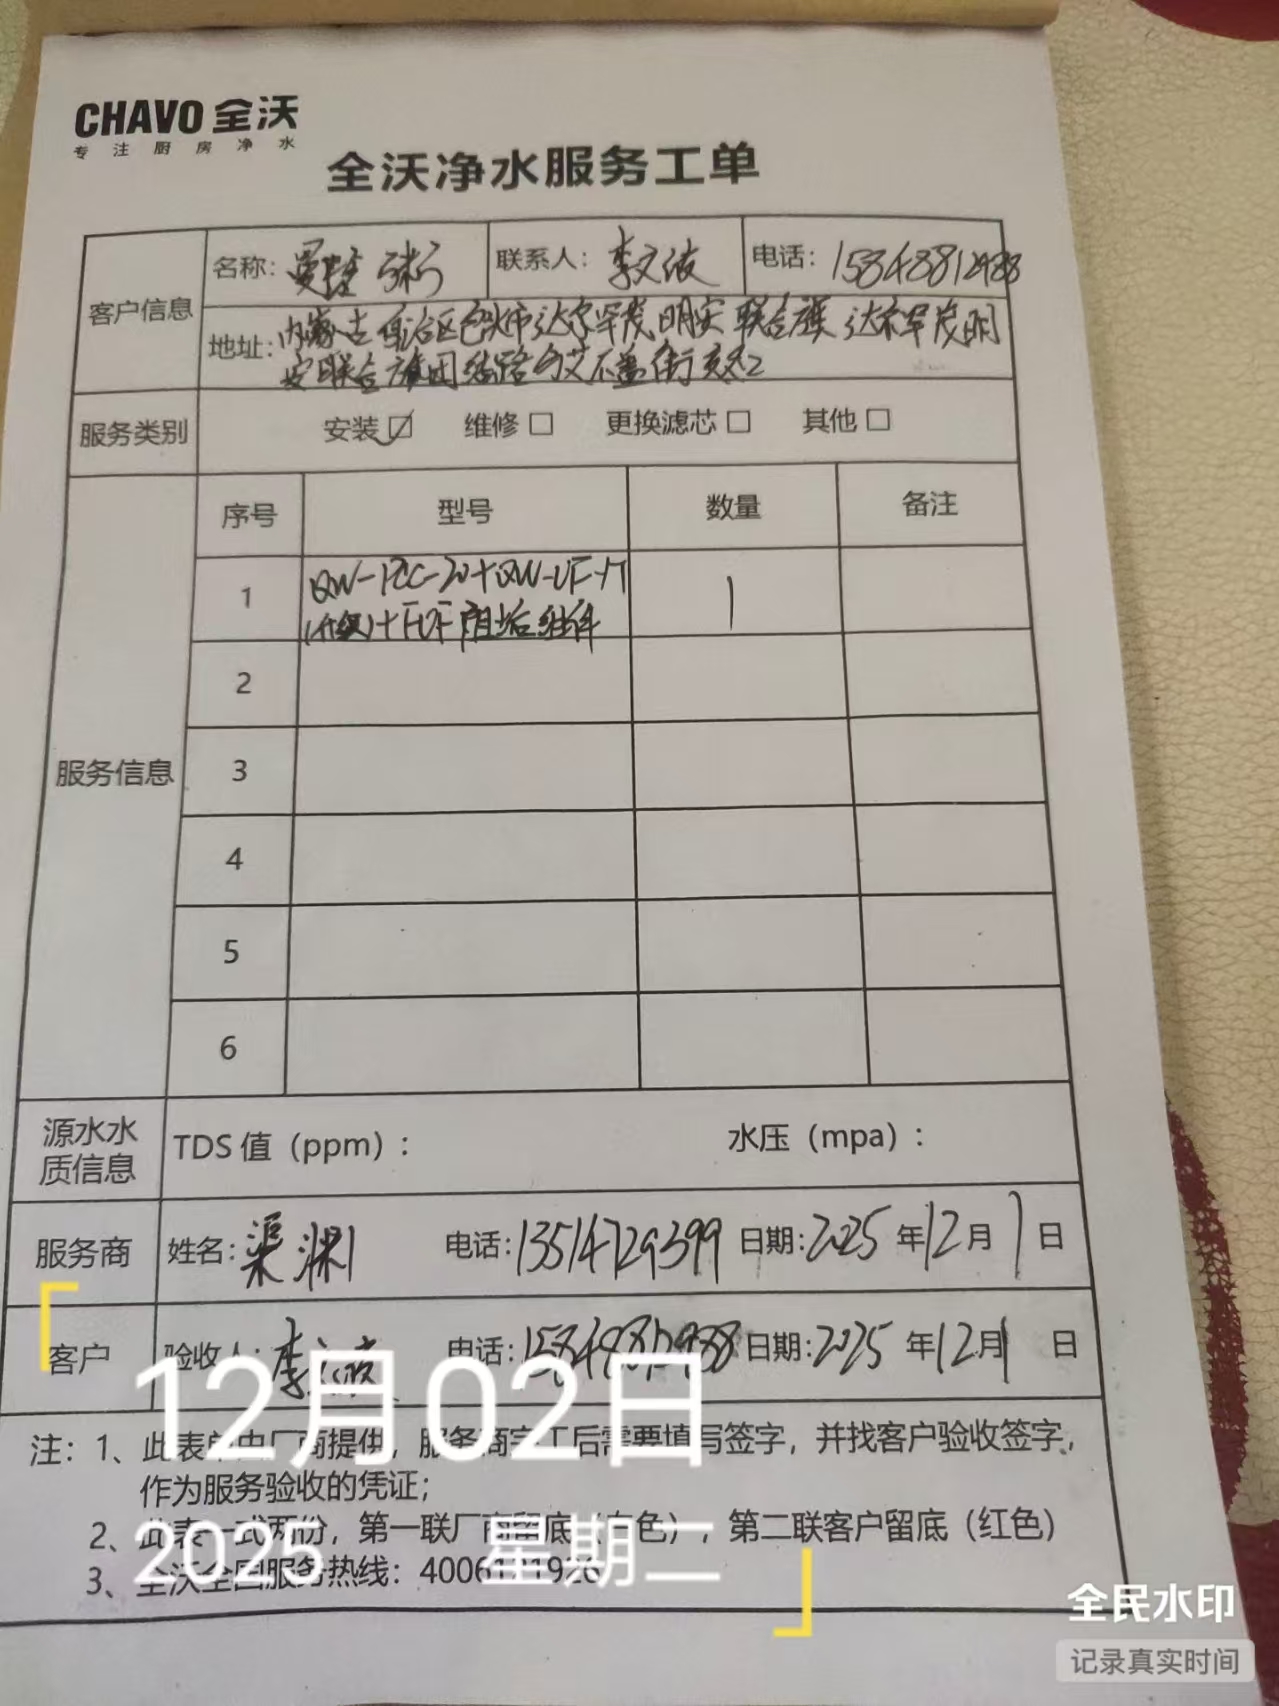 CHAVO 全沃
专注厨房净水
全沃净水服务工单
客户信息
名称: 曼玲粥 联系人: 李文波 电话: 15848812988
地址: 内蒙古自治区包头市达尔罕茂明安联合旗达尔罕茂明
安联合旗团结路与艾不盖街交汇
服务类别 安装☑ 维修□ 更换滤芯□ 其他□
服务信息
序号 型号 数量 备注
1 QW-PCC-20+QW-UF-1T 1
(升级)+FOF阻垢组件
2
3
4
5
6
源水水质信息
TDS 值（ppm）: 水压（mpa）:
服务商 姓名: 渠 电话: 13514729399 日期: 2025 年 12 月 1 日
客户 验收人: 李文波 电话: 15848812988 日期: 2025 年 12 月 1 日
注: 1、此表单由厂商提供，服务商完工后需要填写签字，并找客户验收签字，
作为服务验收的凭证；
2、此表一式两份，第一联厂商留底（白色），第二联客户留底（红色）
3、全沃全国服务热线:
12月02日
2025 星期二
全民水印
记录真实时间